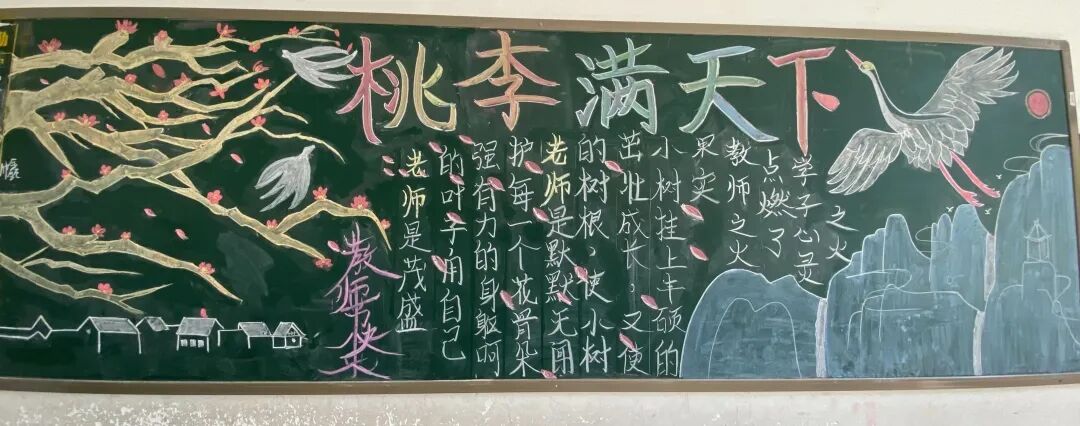 桃李满天下
教师快乐
老师是茂盛
的叶子用自己
强有力的身躯呵
护每一个花骨朵
老师是默默无闻
的树根，使小树
茁壮成长，又使
小树挂上丰硕的
果实
教师之火
点燃了
学子心灵
之火